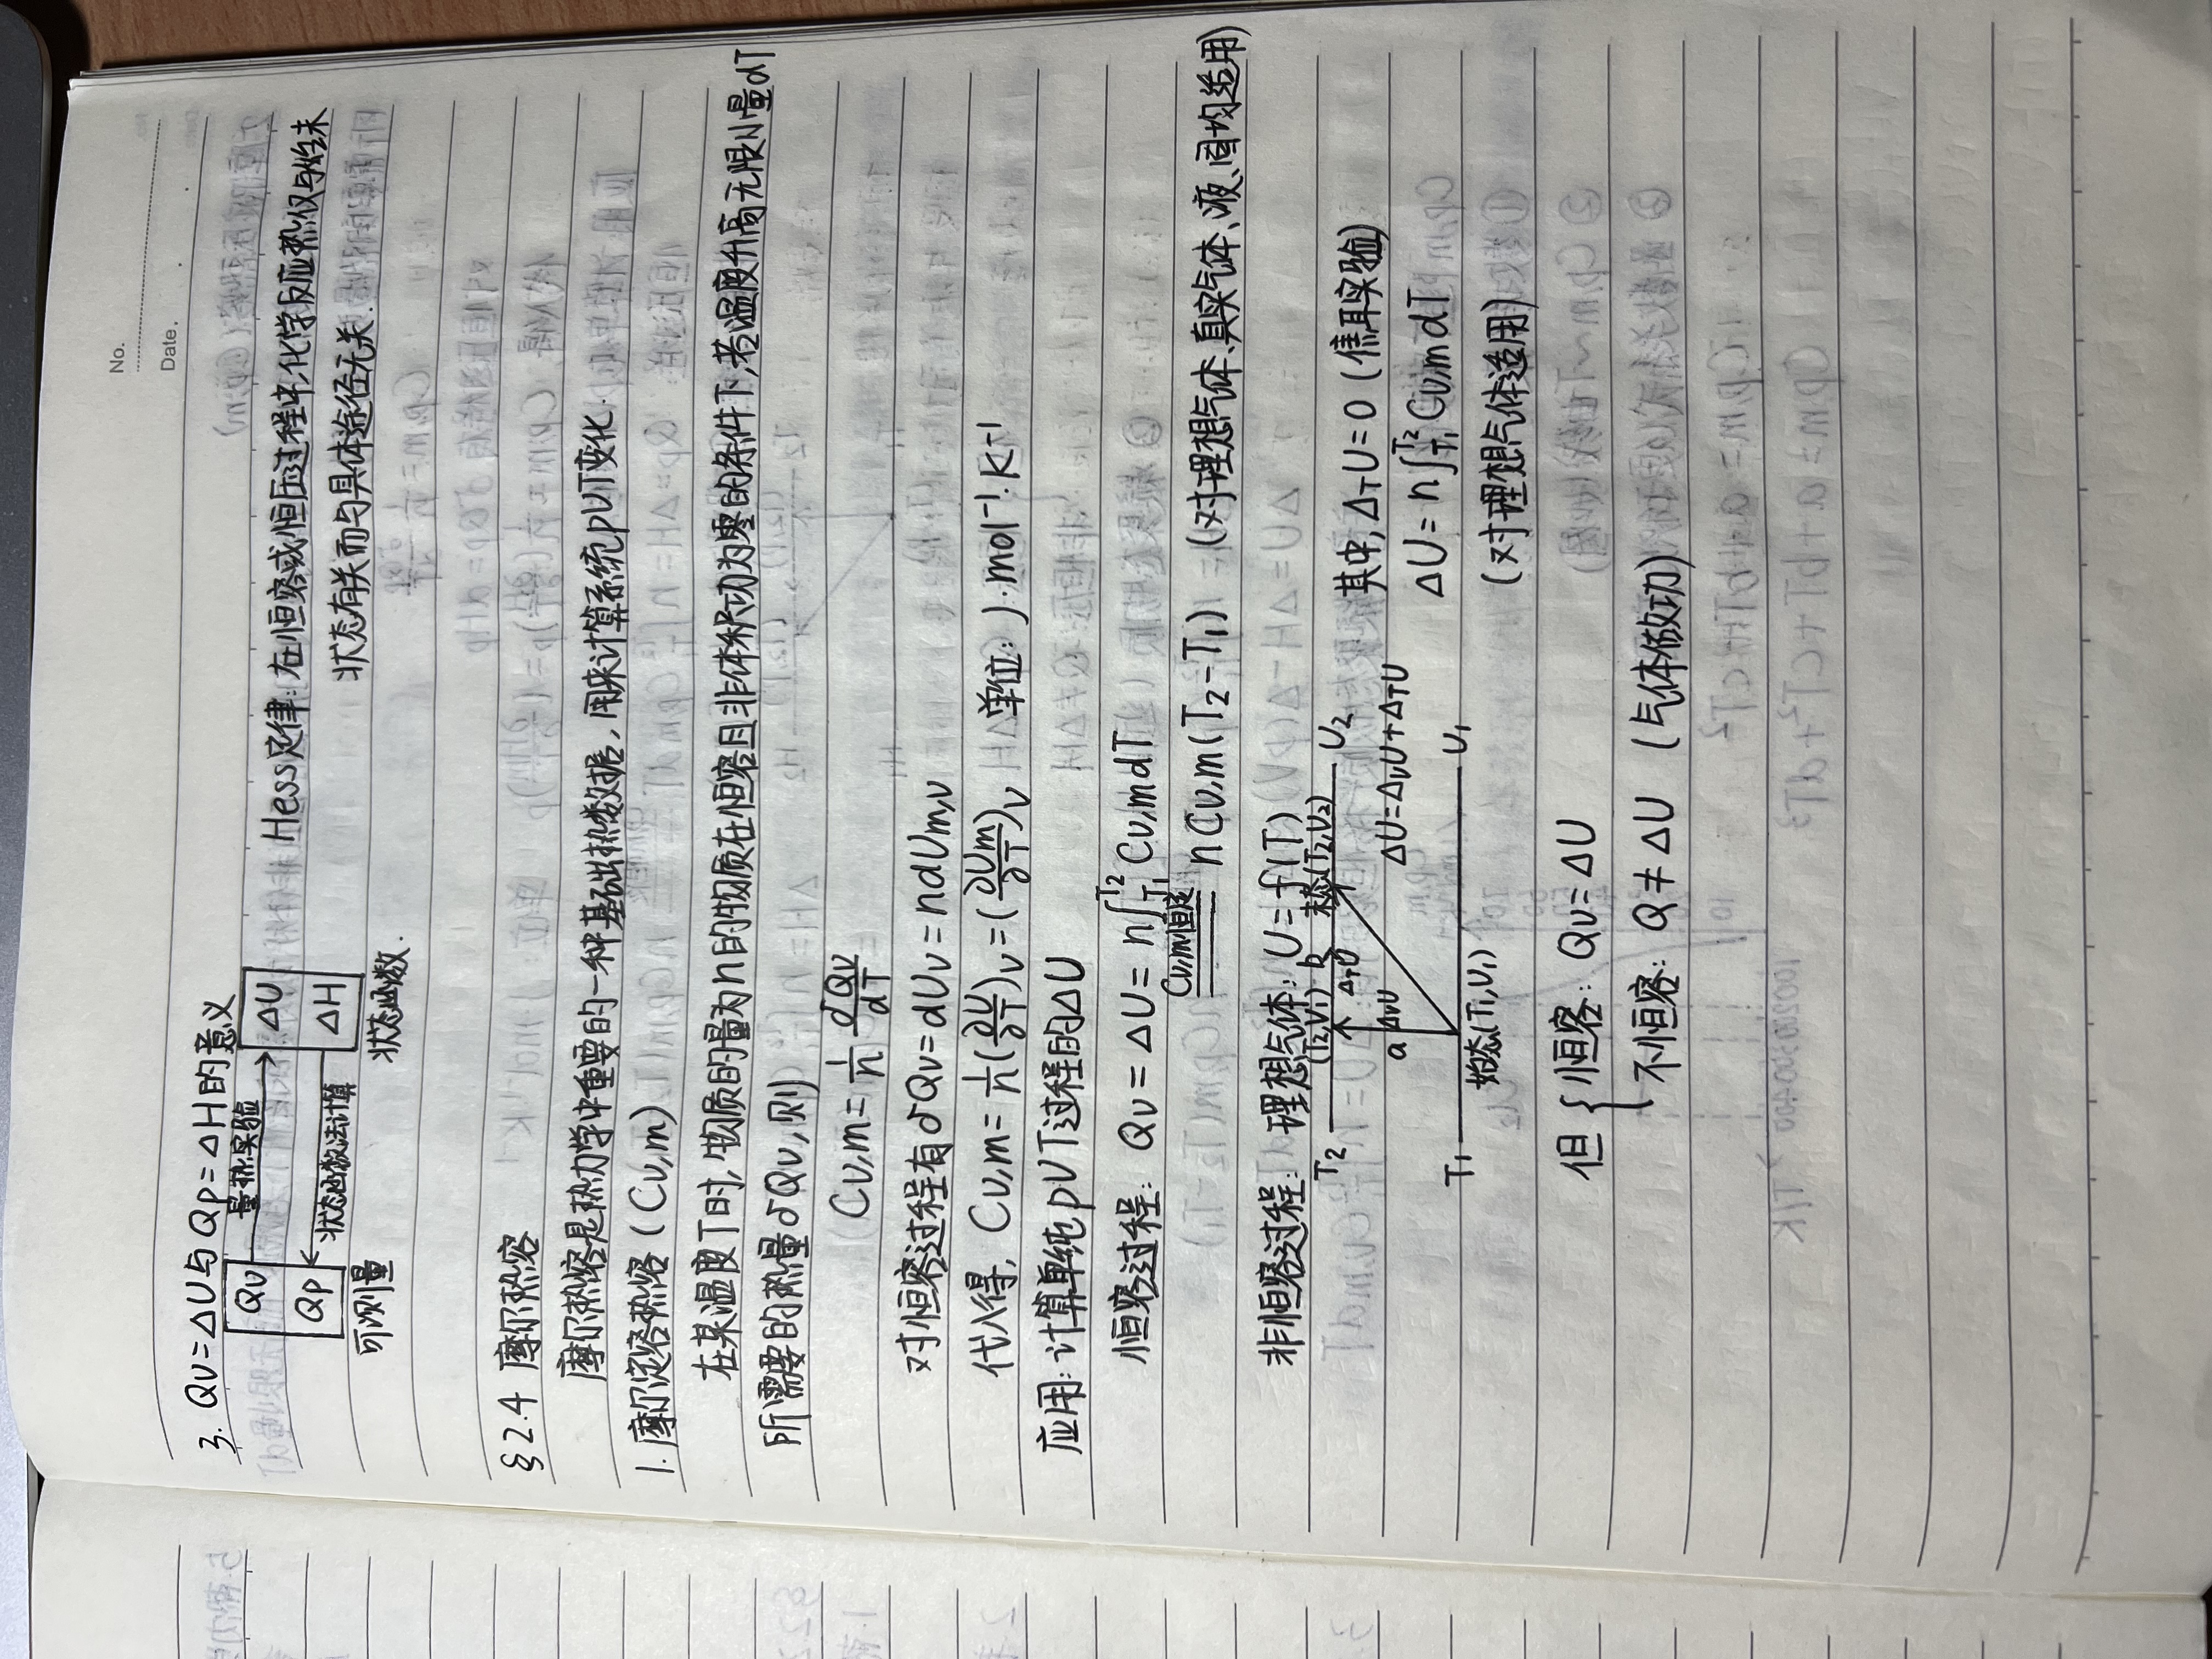 No.
Date.
3. Qv=ΔU与Qp=ΔH的意义
Qv 量热实验 ΔU
Qp 状态函数法计算 ΔH
可测量 状态函数.
Hess定律: 在恒容或恒压过程中,化学反应热仅与始末
状态有关而与具体途径无关.
§2.4 摩尔热容
摩尔热容是热力学中重要的一种基础热数据,用来计算系统pVT变化.
1. 摩尔定容热容 (Cv,m)
在某温度T时,物质的量为n的物质在恒容且非体积功为零的条件下,若温度升高无限小量dT
所需要的热量δQv,则
Cv,m = 1/n δQv/dT
对恒容过程有δQv=dUv=ndUm,v
代入得, Cv,m = 1/n(∂U/∂T)v = (∂Um/∂T)v 单位: J·mol⁻¹·K⁻¹
应用: 计算单纯pVT过程的ΔU
恒容过程: Qv = ΔU = n∫T1T2 Cv,mdT
Cv,m恒定 nCv,m(T2-T1) (对理想气体、真实气体、液、固均适用)
非恒容过程: 理想气体: U=f(T)
T2 (T2,V1) b 末态(T2,V2) U2
ΔTU
a ΔvU ΔU=ΔvU+ΔTU
T1 U1
始态(T1,V1)
其中, ΔTU=0 (焦耳实验)
ΔU = n∫T1T2 Cv,mdT
(对理想气体适用)
但 { 恒容: Qv=ΔU
不恒容: Q≠ΔU (气体做功)